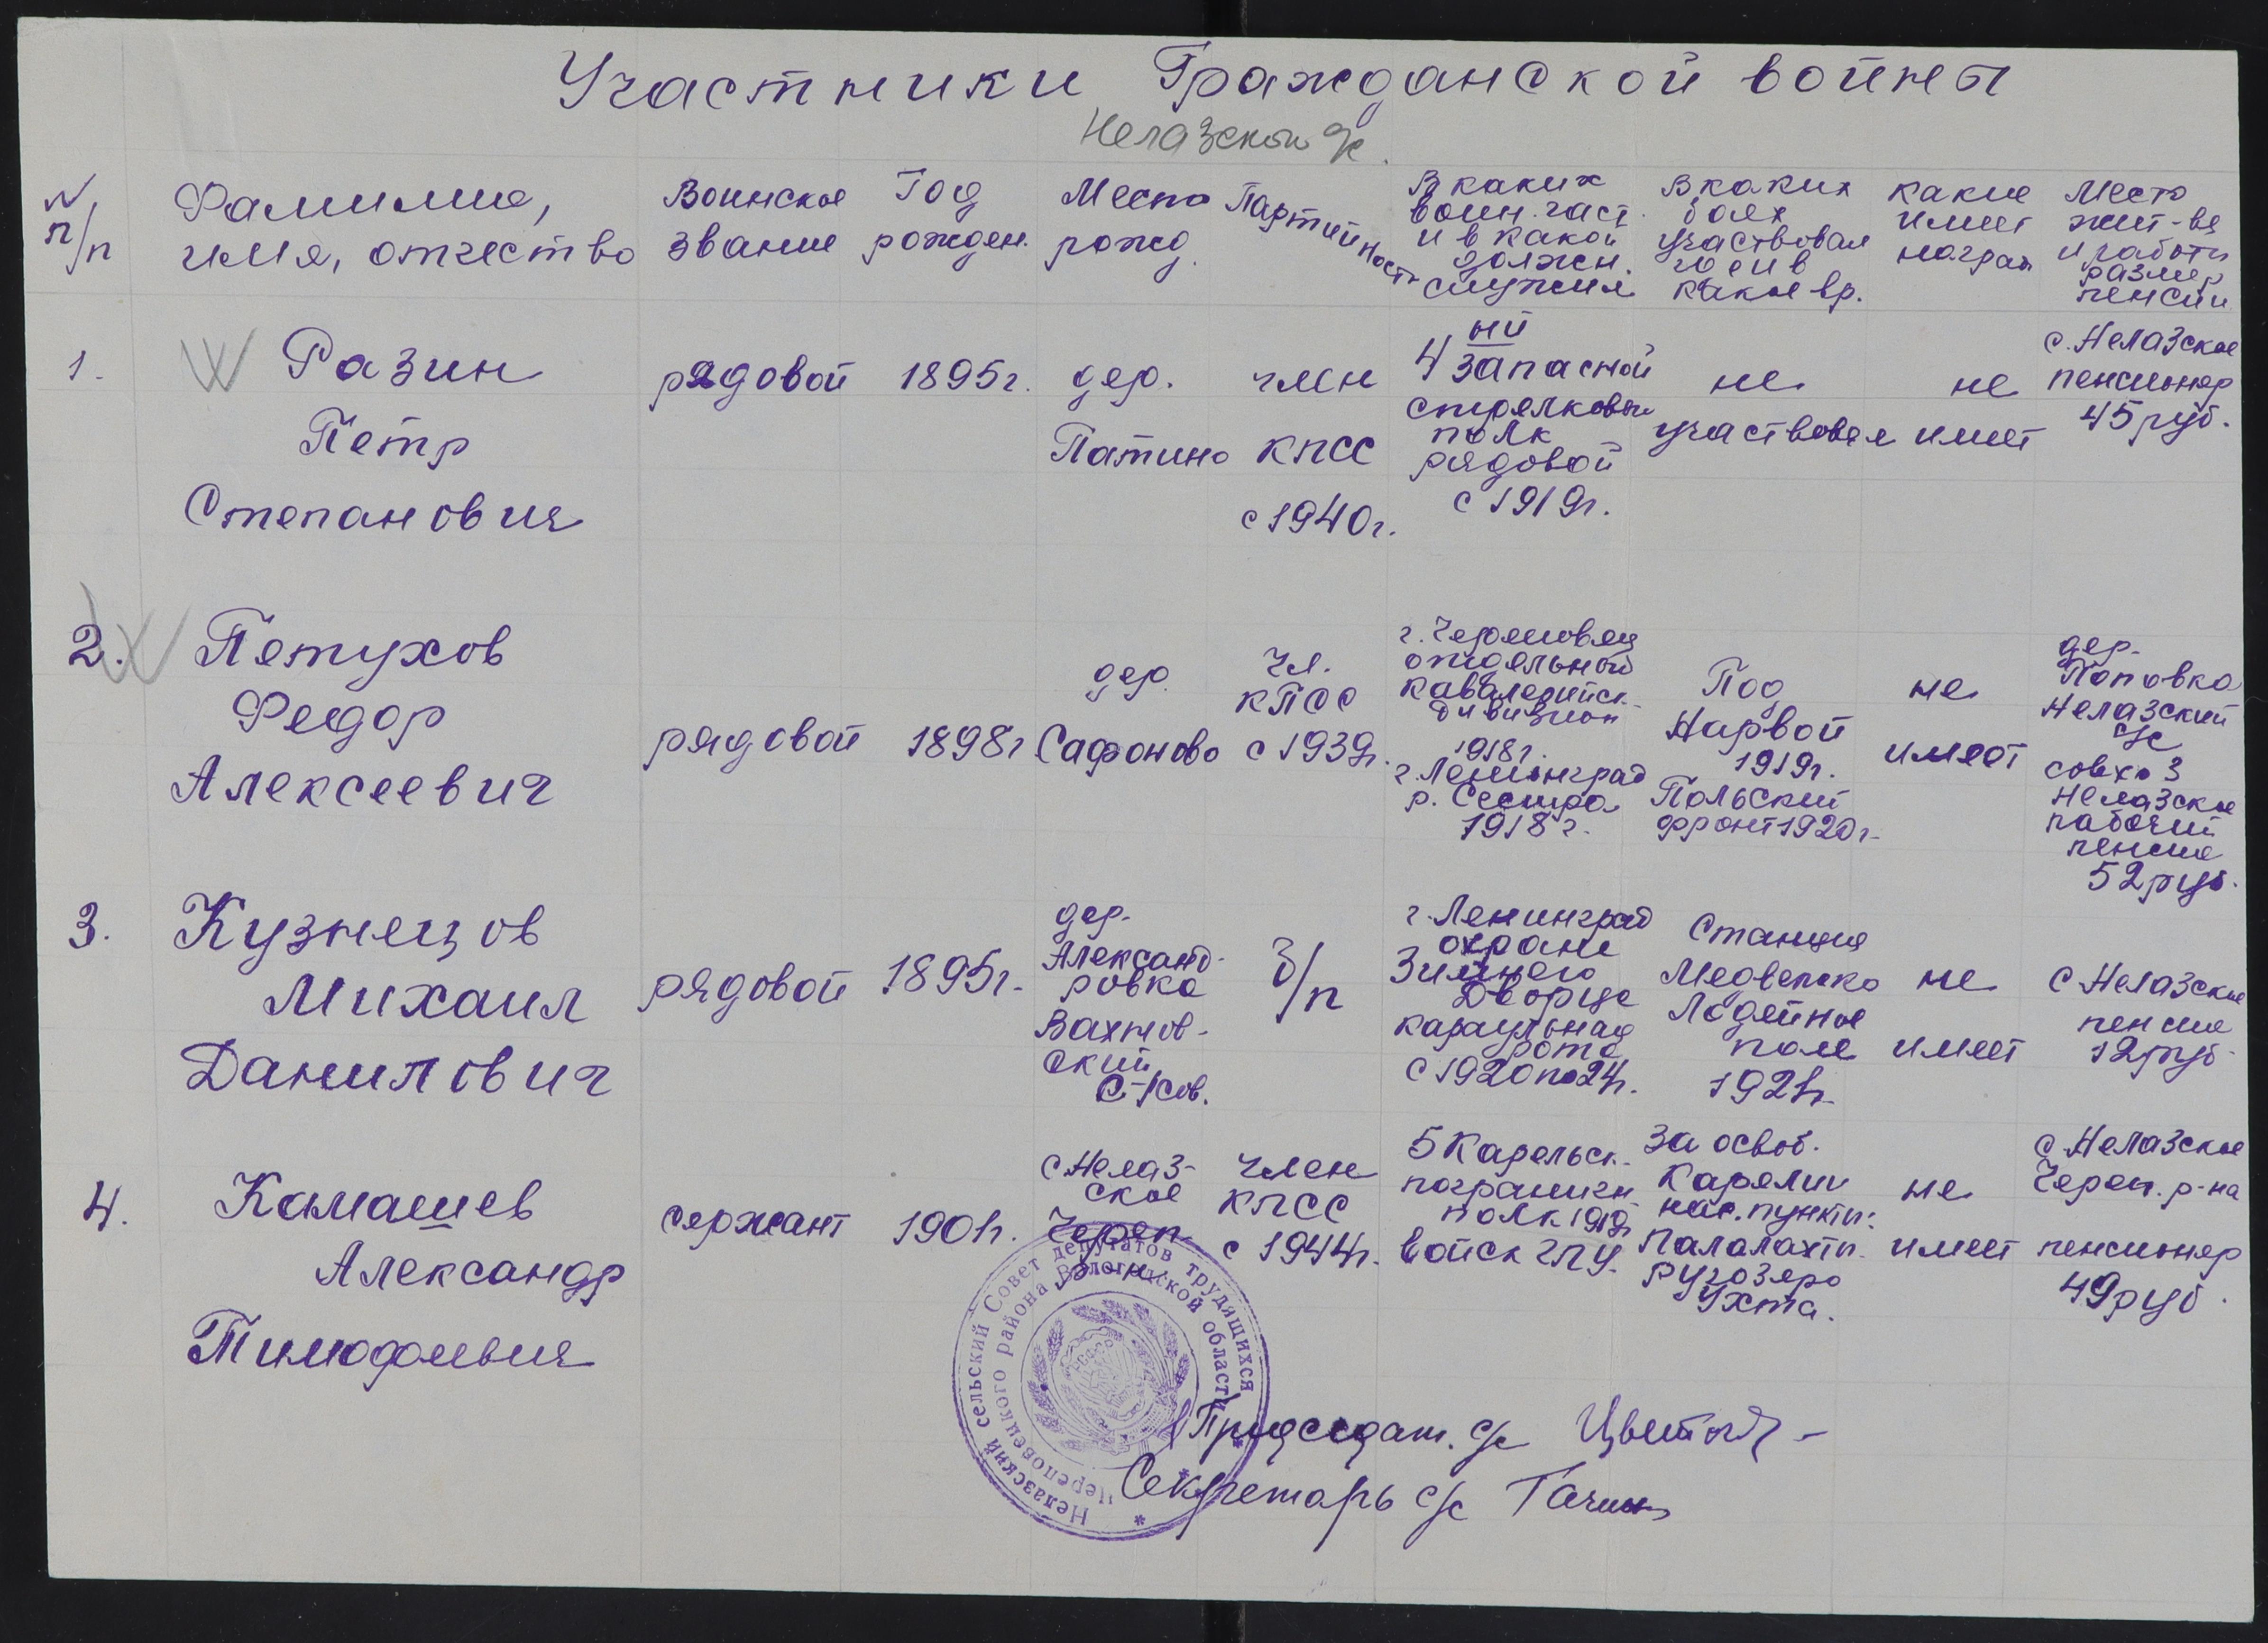 Участники Гражданской войны
Нелазской с/с.
N п/п
Фамилия, имя, отчество
Воинское звание
Год рожден.
Место рожд.
Партийность
В каких воин. част. и в какой должн. служил
В каких боях участвовал где и в какое вр.
Какие имеет наград
Место жит-ва и работы размер пенсии
1.
Разин
Петр
Степанович
рядовой
1895г.
дер.
Патино
член
КПСС
с 1940г.
4 ный запасной
стрелковый
полк
рядовой
с 1919г.
не
участвовал
не
имеет
с. Нелазское
пенсионер
45 руб.
2.
Петухов
Федор
Алексеевич
рядовой
1898г
дер.
Сафоново
чл.
КПСС
с 1939г.
г. Череповец
отдельный
кавалерийск.
дивизион
1918г.
г. Ленинград
р. Сестра
1918г.
Под
Нарвой
1919г.
Польский
фронт 1920г.
не
имеет
дер.
Поповка
Нелазский
с/с
совхоз
Нелазское
рабочий
пенсия
52 руб.
3.
Кузнецов
Михаил
Данилович
рядовой
1895г.
дер.
Александ-
ровка
Вахтов-
ский
с-/сов.
б/п
г. Ленинград
охрана
Зимнего
Дворца
караульная
рота
с 1920 по 24г.
Станция
Лодейное
поле
не
имеет
с Нелазское
пенсия
12 руб.
4.
Камашев
Александр
Тимофеевич
сержант
1901г.
с Нелаз-
ское
Череп.
р-на
член
КПСС
с 1944г.
5 Карельск.
погранич
полк 1919г
войск ГПУ.
За освоб.
Карелии
нас. пункты:
Палалахти
Ругозеро
Ухта.
не
имеет
с. Нелазское
Череп. р-на
пенсионер
49 руб.
Нелазский сельский Совет депутатов трудящихся
Череповецкого района Вологодской области
РСФСР
Председат. с/с
Секретарь с/с